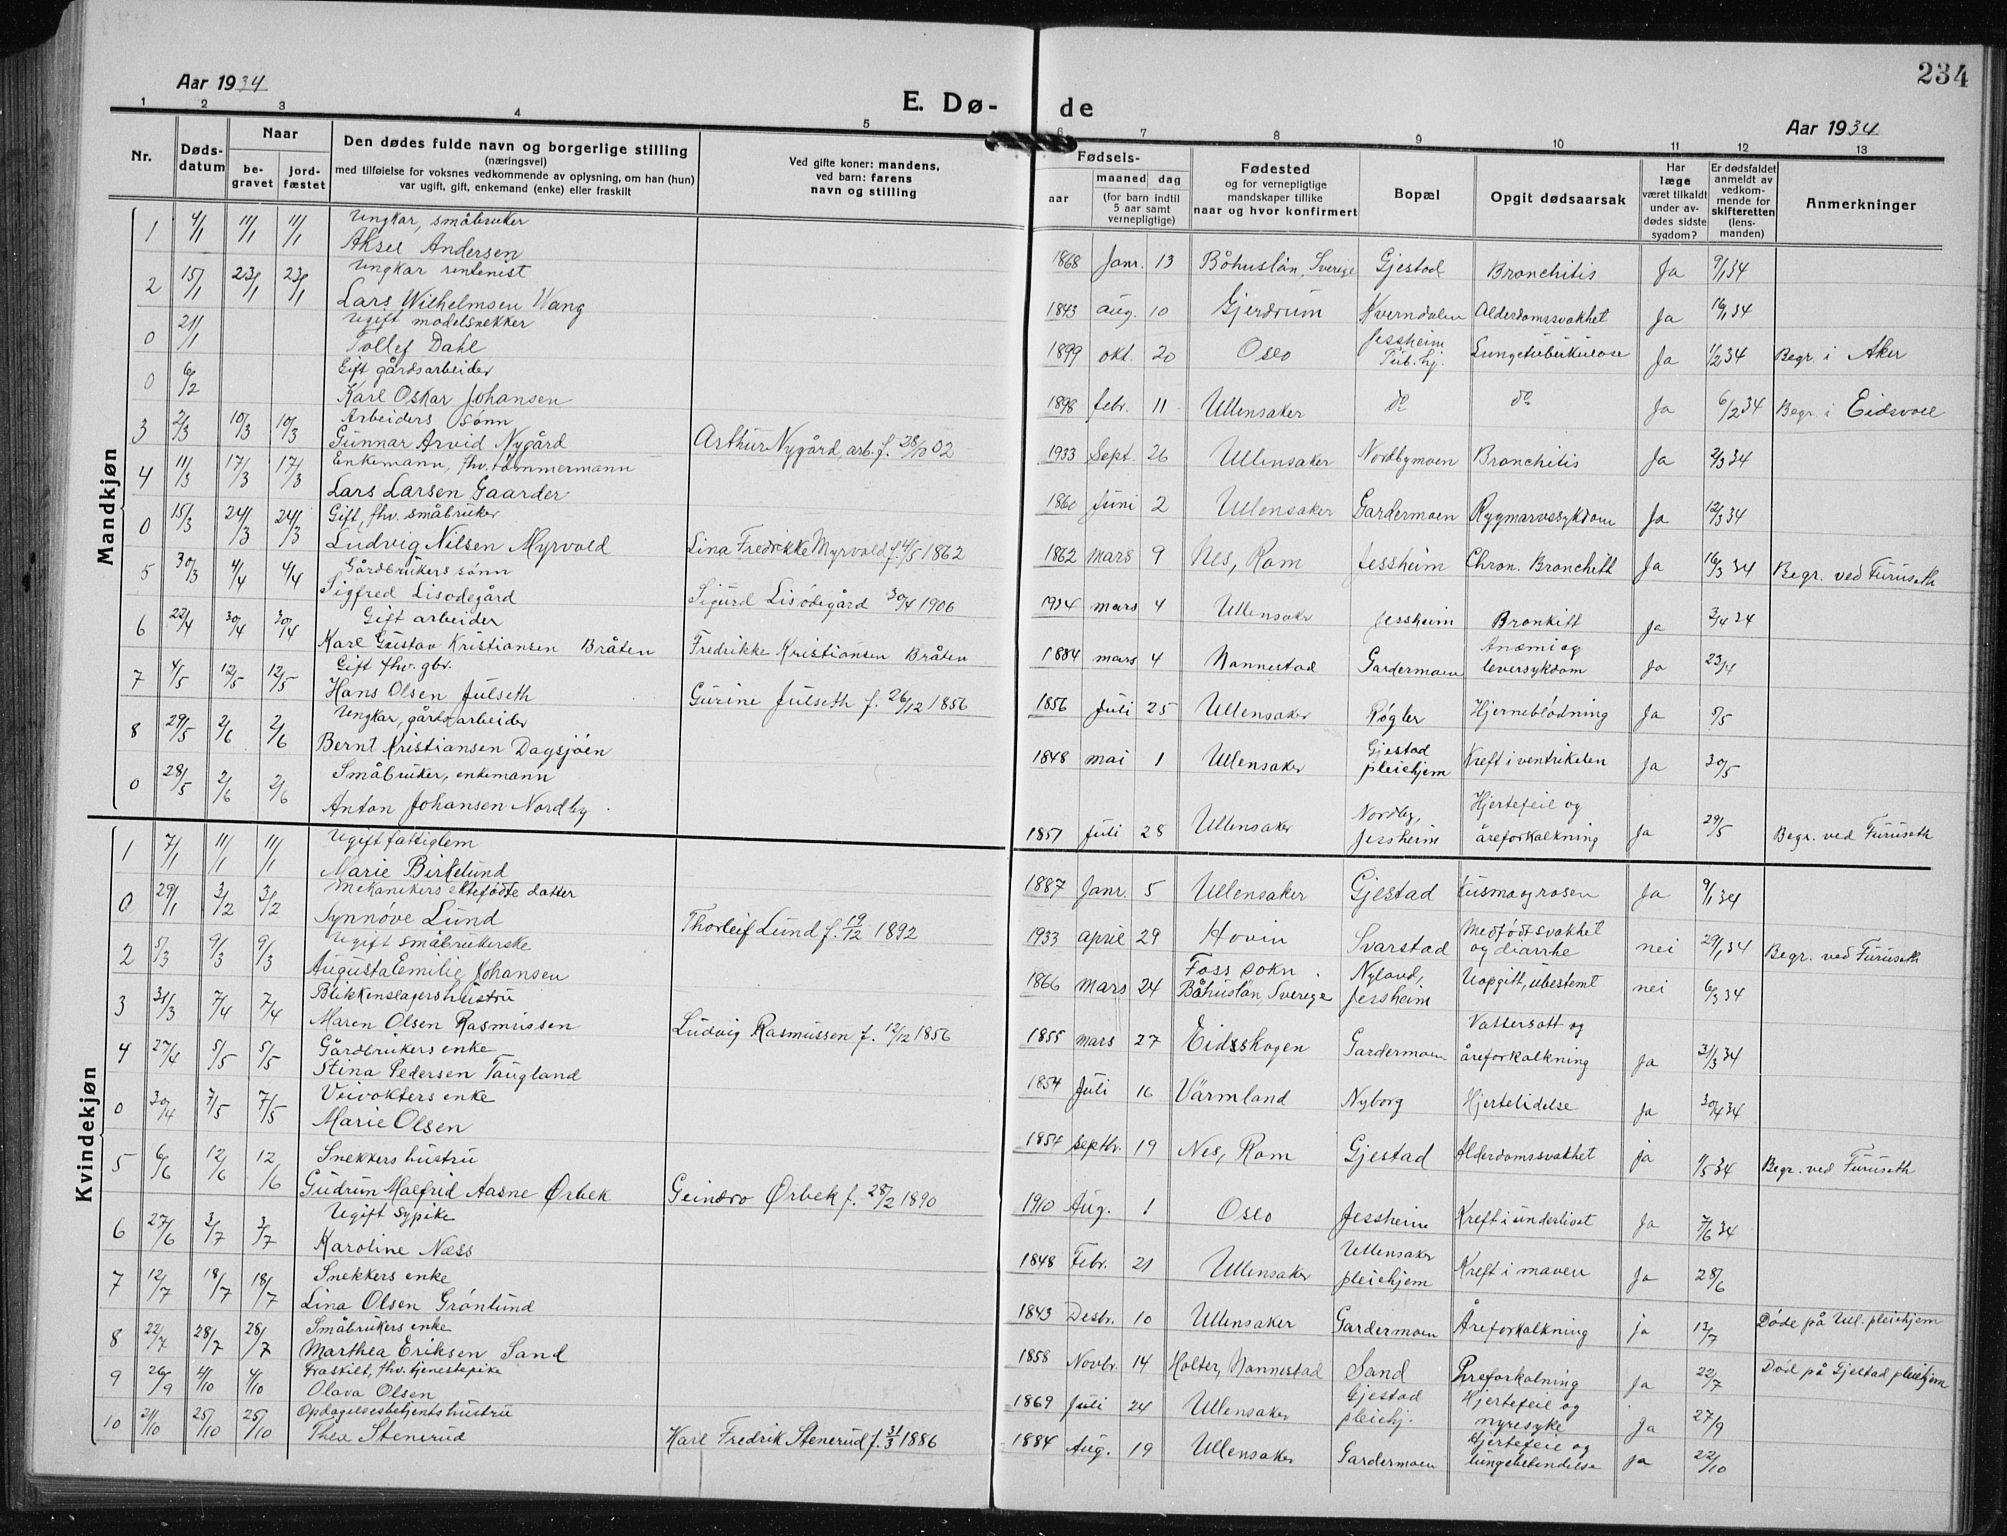 Aar 1934
E. Dø- de
Aar 1934
234
1 2 3 4 5 6 7 8 9 10 11 12 13
Nr.
Døds-datum
Naar
be-gravet
jord-fæstet
Den dødes fulde navn og borgerlige stilling
(næringsvei)
med tilføielse for voksnes vedkommende av oplysning, om han (hun)
var ugift, gift, enkemand (enke) eller fraskilt
Ved gifte koner: mandens,
ved barn: farens
navn og stilling
Fødsels-
aar
maaned dag
(for barn indtil
5 aar samt
vernepligtige)
Fødested
og for vernepligtige
mandskaper tillike
naar og hvor konfirmert
Bopæl
Opgit dødsaarsak
Har
læge
været tilkaldt
under av-
dødes sidste
sygdom?
Er dødsfaldet
anmeldt av
vedkom-
mende for
skifteretten
(lens-
manden)
Anmerkninger
Mandkjøn
1 4/1 11/1 11/1 Ungkar, småbruker
Aksel Andersen 1868 Janr. 13 Båhuslän, Sverige Gjestad Bronchitis Ja 9/1 34
2 15/1 23/1 23/1 Ungkar rentenist
Lars Wilhelmsen Wang 1843 aug. 10 Gjerdrum Kverndalen Alderdomssvakhet Ja 16/1 34
0 21/1 Ugift modelsnekker
Tollef Dahl 1899 okt. 20 Oslo Jessheim
Tub.hj. Lungetuberkulose Ja 1/2 34 Begr. i Aker
0 6/2 Gift gårdsarbeider
Karl Oskar Johansen 1898 febr. 11 Ullensaker do do Ja 6/2 34 Begr. i Eidsvoll
3 2/3 10/3 10/3 Arbeiders sønn
Gunnar Arvid Nygård Arthur Nygård, arb. f. 02 1933 Sept. 26 Ullensaker Nordbymoen Bronchitis Ja 2/3 34
4 11/3 17/3 17/3 Enkemann, fhv. tømmermann
Lars Larsen Gaarder 1860 Juni 2 Ullensaker Gardermoen Rygmarvssykdom Ja 12/3 34
0 15/3 24/3 24/3 Gift, fhv. småbruker
Ludvig Nilsen Myrvold Lina Fredrikke Myrvold f. 4/5 1862 1862 mars 9 Nes, Rom Jessheim Chron. Bronchitt Ja 16/3 34 Begr. ved Furuseth
5 30/3 4/4 4/4 Gårdbrukers sønn
Sigfred Lisødegård Sigurd Lisødegård 30/4 1906 1934 mars 4 Ullensakr Jessheim Bronkitt Ja 3/4 34
6 22/4 30/4 30/4 Gift arbeider
Karl Gustav Kristiansen Bråten Fredrikke Kristiansen Bråten 1884 mars 4 Nannestad Gardermoen Anæmi og
leversykdom Ja 23/4
7 4/5 12/5 12/5 Gift fhv. gbr.
Hans Olsen Julseth Gurine Julseth f. 26/12 1856 1856 Juli 25 Ullensaker Røgler Hjerneblødning Ja 5/5
8 29/5 2/6 2/6 Ungkar, gårdsarbeider
Bernt Kristiansen Dagsjøen 1848 mai 1 Ullensaker Gjestad
pleiehjem Kreft i ventrikelen Ja 30/5
0 28/5 2/6 2/6 Småbruker, enkemann
Anton Johansen Nordby. 1851 Juli 28 Ullensaker Nordby,
Jessheim Hjertefeil og
åreforkalkning Ja 29/5 Begr. ved Furuseth
Kvindekjøn
1 7/1 11/1 11/1 Ugift fattiglem
Marie Birkelund 1887 Janr. 5 Ullensaker Gjestad rosen Ja 9/1 34
0 29/1 3/2 3/2 Mekanikers ektefødte datter
Synnøve Lund Thorleif Lund f. 19/12 1892 1933 april 29 Hovin Svarstad Medfødt svakhet
og diarrhe nei 29/1 34 Begr. ved Furuseth
2 5/3 9/3 9/3 Ugift småbrukerske
Augusta Emilie Johansen 1866 mars 24 Foss sokn.
Båhuslän, Sverige Nyland,
Jessheim Uopgitt, ubestemt nei 6/3 34
3 31/3 7/4 7/4 Blikkenslagers hustru
Maren Olsen Rasmussen Ludvig Rasmussen f. 12/12 1856 1855 mars 27 Eidsskogen Gardermoen Vattersott og
åreforkalkning Ja 31/3 34
4 27/4 5/5 5/5 Gårdbrukers enke
Stina Pedersen Taugland 1854 Juli 16 Värmland Nyborg Hjertelidelse Ja 30/4 34
0 30/4 7/5 7/5 Veivokters enke
Marie Olsen 1854 septbr. 19 Nes, Rom Gjestad Alderdomssvakhet ja 1/5 34 Begr. ved Furuseth
5 6/6 12/6 12/6 Snekkers hustru
Gudrun Malfred Aasne Ørbek Ørbek f. 28/2 1890 1910 Aug. 1 Oslo Jessheim Kreft i underlivet Ja 7/6 34
6 27/6 3/7 3/7 Ugift sypike
Karoline Næss 1848 Febr. 21 Ullensaker Ullensaker
pleiehjem Kreft i maven Ja 28/6
7 12/7 18/7 18/7 Snekkers enke
Lina Olsen Grønlund 1843 Desbr. 10 Ullensaker Gardermoen Åreforkalkning ja 13/7 Døde på Ull. pleiehjem
8 22/7 28/7 28/7 Småbrukers enke
Marthea Eriksen Sand 1858 Novbr. 14 Holter, Nannestad Sand Åreforkalning ja 22/7 Død på Gjestad pleiehjem
9 26/9 4/10 4/10 Fraskilt, fhv. tjenestepike
Olava Olsen 1869 Juli 24 Ullensaker Gjestad
pleiehj. Hjertefeil og
nyresyke Ja 27/9
10 21/10 25/10 25/10 Opdagelsesbetjents hustru
Thea Stenerud Karl Fredrik Stenerud f. 31/3 1886 1884 Aug. 19 Ullensaker Gardermoen Hjertefeil og
lungebetendelse Ja 22/10